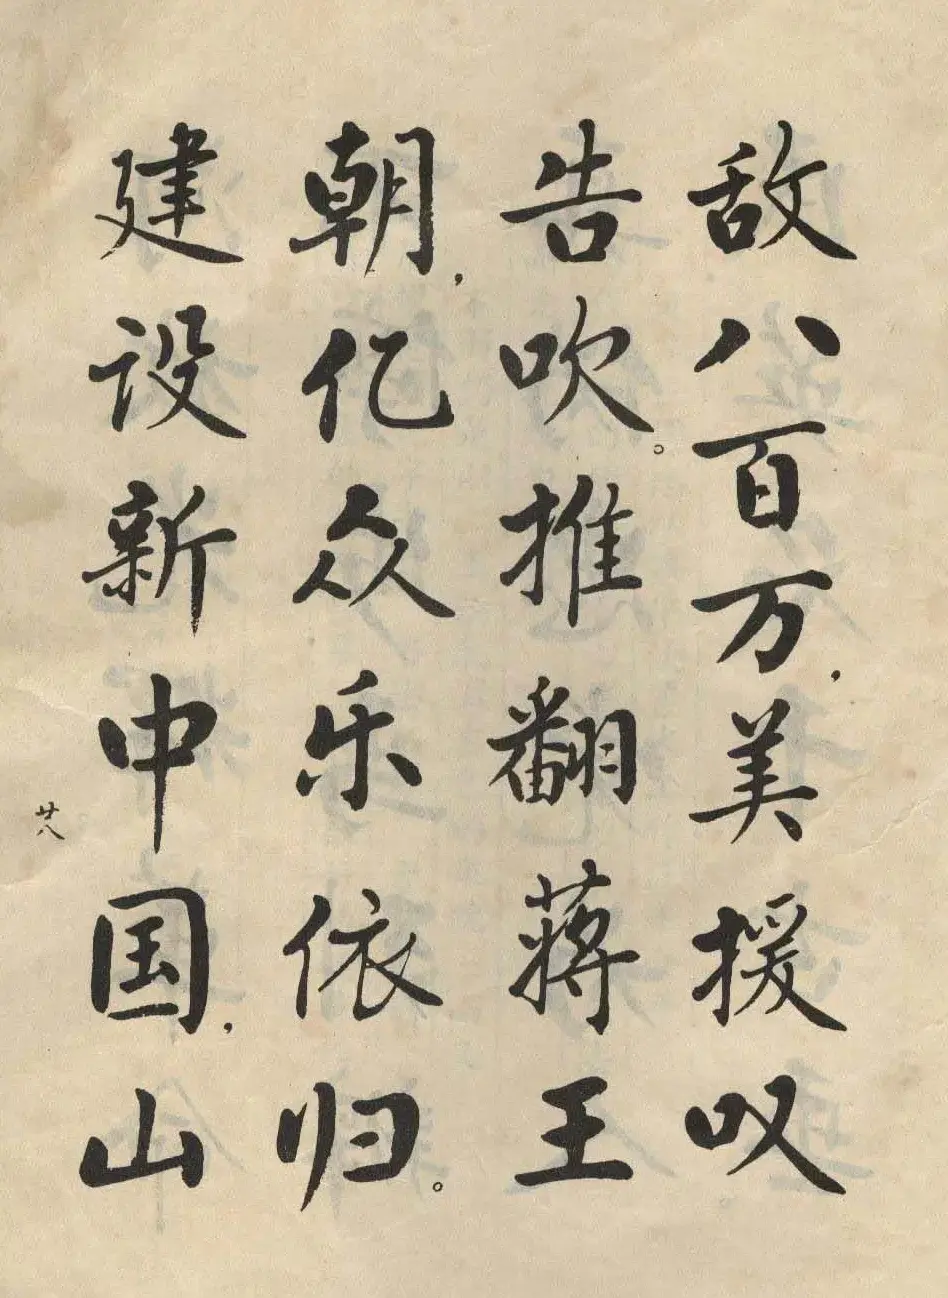 敌八百万，美援叹
告吹。推翻蒋王
朝，亿众乐依归。
建设新中国，山
廿八